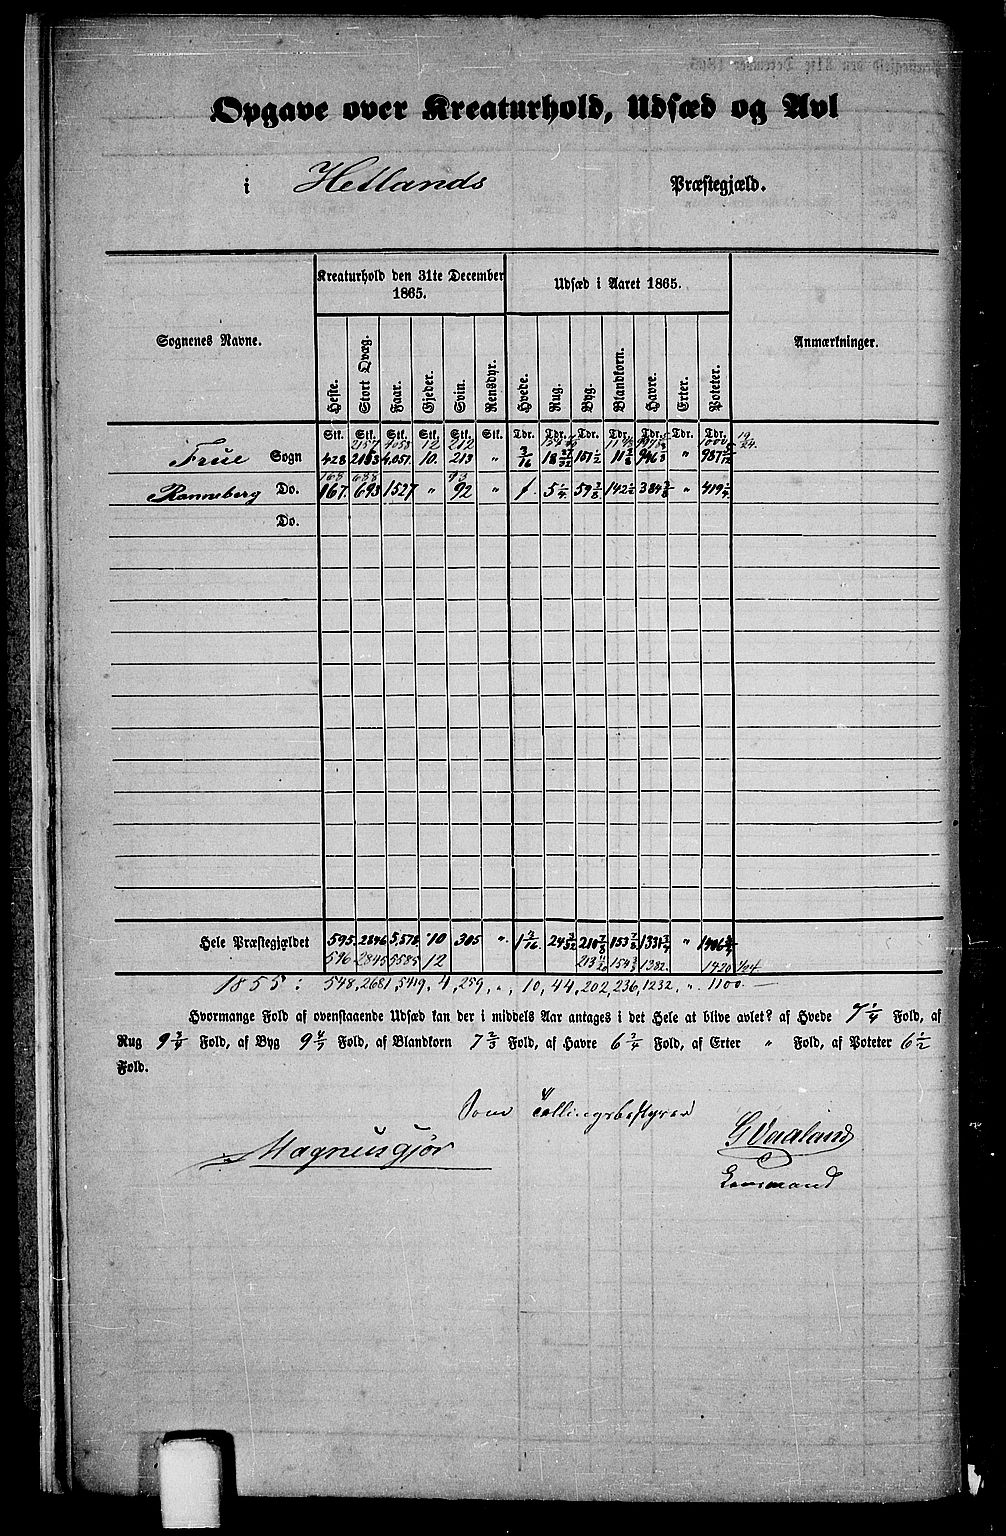 Opgave over Kreaturhold, Udsæd og Avl
i Hetlands Præstegjæld.
Sognenes Navne. Kreaturhold den 31te December 1865. Udsæd i Aaret 1865. Anmærkninger.
Heste. Stort Qvæg. Faar. Gjeder. Svin. Rensdyr. Hvede. Rug. Byg. Blandkorn. Havre. Erter. Poteter.
Stk. Stk. Stk. Stk. Stk. Stk. Tdr. Tdr. Tdr. Tdr. Tdr. Tdr. Tdr.
2157 4058 12 212
Frue Sogn 428 2153 4,051. 10. 213 „ 3/16 151 1/2 11 3/8 „
168 688 93
Ranneberg Do. 167. 693 1527 „ 92 „ 1. 5 1/4 59 3/8 142 1/2 384 3/8 „ 419 1/4
Do.
Hele Præstegjældet 595. 2846 5,578 10 305 „ 1 3/16 210 7/8 153 7/8 1331 3/4 „
596 2845 5585 12 1382. 1420
1855: 548, 2681, 5419, 4, 259, „, 10, 44, 202, 236, 1232, „. 1100.
Hvormange Fold af ovenstaaende Udsæd kan der i middels Aar antages i det Hele at blive avlet? af Hvede 7 1/4 Fold, af
Rug 9 3/4 Fold, af Byg 9 Fold, af Blandkorn 7 2/3 Fold, af Havre 6 3/4 Fold, af Erter „ Fold, af Poteter 6 1/2
Fold.
Som Tællingsbestyrer
Magnus Gjør G Vaaland
Lensmand